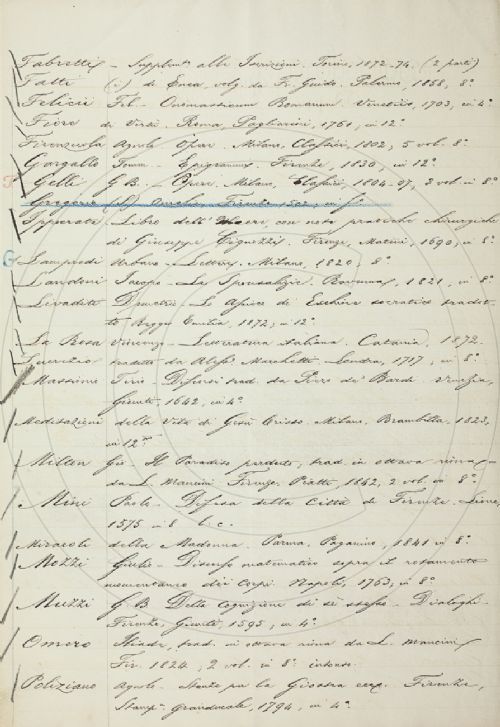 Fabretti - Supplemto alle Iscrizioni. Torino, 1872-74. (2 parti)
Fatti (i) di Enea, volg. da Fr. Guido. Palermo, 1858, 8°
Felicii Fel - Onomasticum Romanum. 1703, in 4°
Fiore di Virtù. Roma, Pagliarini, 1751, in 12°
Firenzuola Agnolo Opere. Milano, Classici, 1802, 5 vol. 8°
Gargallo Tomm. - Epigrammi. Firenze, 1830, in 12°
Gelli G B. - Opere. Milano, Classici, 1804-07, 2 vol. in 8°
Gregorio (S)
Ipperate Libro dell' con note pratiche chirurgiche
di Giuseppe Cignozzi. Firenze, 1690, in 8°
G Lampredi Urbano - Lettera. Milano, 1820, 8°
Landoni Jacopo - La Ravenna, 1821, in 8°
Levadetti Demetrio - Le di Eschine socratico tradot-
te Reggio Emilia, 1872, in 12°
La Rosa Vincenzo - Letteratura italiana. Catania, 1872
Lucrezio tradotto da Aless. Marchetti - Londra, 1717, in 8°
Massimo Tirio - Discorsi trad. da Piero de' Bardi. Venezia,
Giunti, 1642, in 4°
Meditazioni della Vita di Gesù Cristo. Milano, Brambilla, 1823,
in 12°
Milton Gio - Il Paradiso perduto, trad. in ottava rima
da L. Mancini Firenze, Piatti, 1842, 2 vol. in 8°
Mini Paolo - Difesa della Città di Firenze. Lione,
1575 in 8
Miracoli della Madonna. Parma, Paganino, 1841 in 8°
Mozzi Giulio - Discorso matematico sopra il rotamento
momentaneo dei corpi. Napoli, 1763, in 8°
Muzzi G B Della Cognizione di sè stesso - Dialoghi.
Firenze, Giunti, 1595, in 4°
Omero Iliade, trad. in ottava rima da L. Mancini
Fir. 1824, 2 vol. in 8° intenso.
Poliziano Agnolo - Stanze per la Giostra Firenze,
Stamp. Granducale, 1794, in 4°